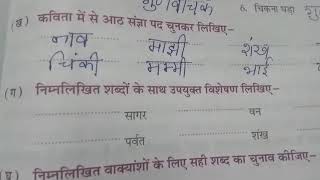 गुणवाचक 6. चिकना घड़ा
(ख) कविता में से आठ संज्ञा पद चुनकर लिखिए–
नाव माझी शंख
चिंकी मम्मी भाई
(ग) निम्नलिखित शब्दों के साथ उपयुक्त विशेषण लिखिए–
सागर वन
पर्वत शंख
निम्नलिखित वाक्यांशों के लिए सही शब्द का चुनाव कीजिए–